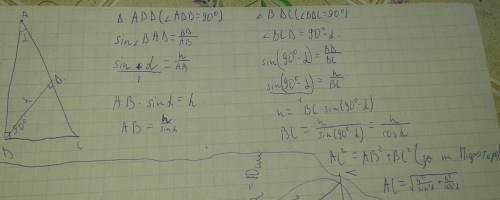 A
D
h
90°
B
C
Δ ABD (∠ADB=90°)
sin∠BAD = BD/AB
sin∠α/1 = h/AB
AB · sinα = h
AB = h/sinα
∠BCD = 90°-α
sin(90°-α) = BD/BC
sin(90°-α)/1 = h/BC
h = BC · sin(90°-α)
BC = h/sin(90°-α) = h/cosα
AC² = AB² + BC² (
AC = √(h²/sin²α + h²/cos²α)